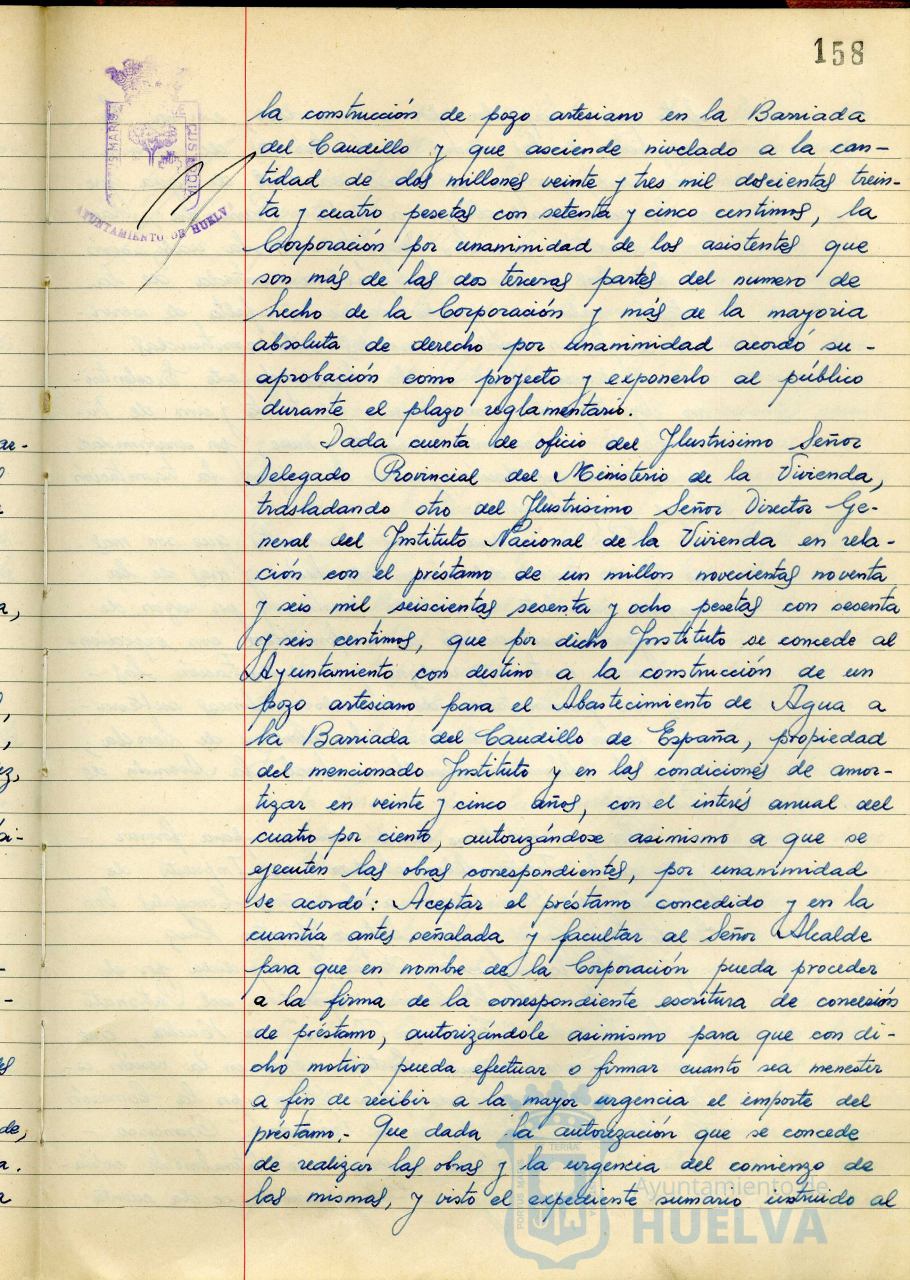 158
la construcción de pozo artesiano en la Barriada
del Caudillo y que asciende nivelado a la can-
tidad de dos millones veinte y tres mil doscientas trein-
ta y cuatro pesetas con setenta y cinco centimos, la
Corporación por unanimidad de los asistentes que
son más de las dos terceras partes del numero de
hecho de la Corporación y más de la mayoria
absoluta de derecho por unanimidad acordó su -
aprobación como proyecto y exponerlo al público
durante el plazo reglamentario.
Dada cuenta de oficio del Ilustrisimo Señor
Delegado Provincial del Ministerio de la Vivienda,
trasladando otro del Ilustrisimo Señor Director Ge-
neral del Instituto Nacional de la Vivienda en rela-
ción con el préstamo de un millon novecientas noventa
y seis mil seiscientas sesenta y ocho pesetas con sesenta
y seis centimos, que por dicho Instituto se concede al
Ayuntamiento con destino a la construcción de un
pozo artesiano para el Abastecimiento de Agua a
la Barriada del Caudillo de España, propiedad
del mencionado Instituto y en las condiciones de amor-
tizar en veinte y cinco años, con el interés anual del
cuatro por ciento, autorizándose asimismo a que se
ejecuten las obras correspondientes, por unanimidad
se acordó: Aceptar el préstamo concedido y en la
cuantía antes señalada y facultar al Señor Alcalde
para que en nombre de la Corporación pueda proceder
a la firma de la correspondiente escritura de concesión
de préstamo, autorizándole asimismo para que con di-
cho motivo pueda efectuar o firmar cuanto sea menester
a fin de recibir a la mayor urgencia el importe del
préstamo.- Que dada la autorización que se concede
de realizar las obras y la urgencia del comienzo de
las mismas, y visto el expediente sumario instruido al
AYUNTAMIENTO DE HUELVA
Ayuntamiento de
HUELVA